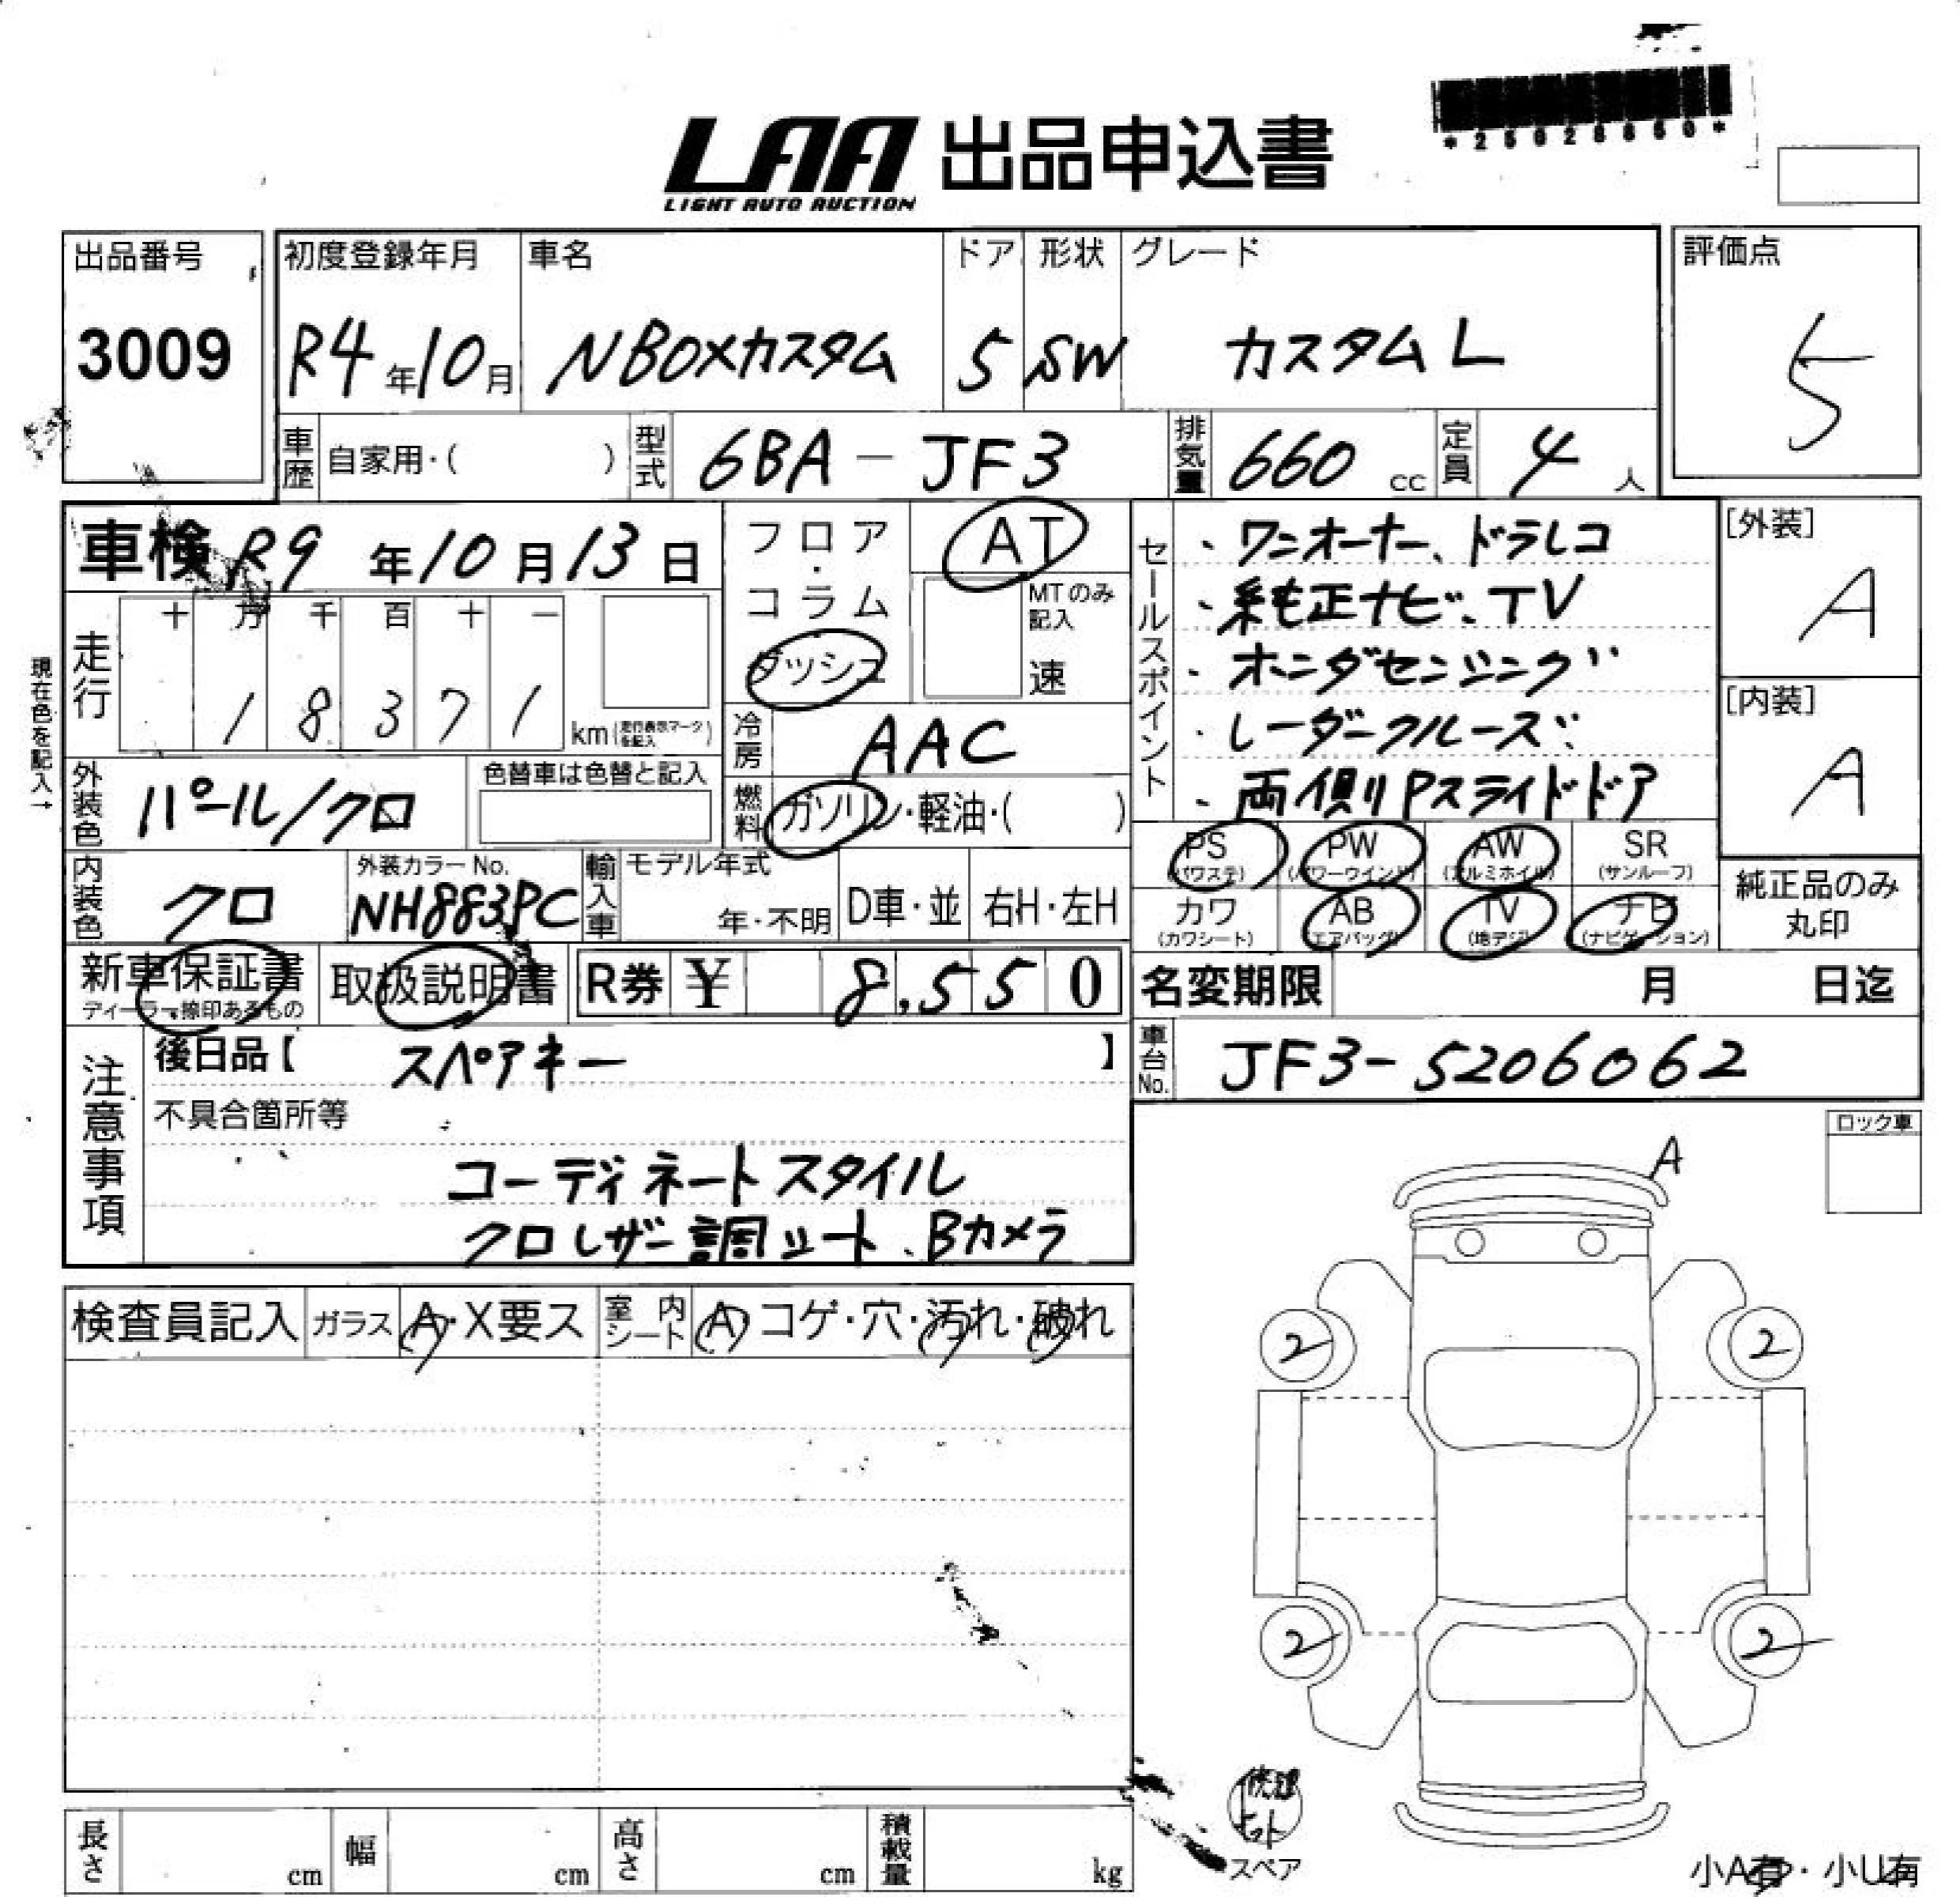 *25028850*
LAA 出品申込書
LIGHT AUTO AUCTION
出品番号
3009
初度登録年月
R4年10月
車名
NBOXカスタム
ドア
5
形状
SW
グレード
カスタムL
評価点
5
車歴 自家用・( )
型式 6BA-JF3
排気量 660 cc
定員 4 人
車検 R9年10月13日
フロア・コラム
ダッシュ
AT
MTのみ記入
速
セールスポイント
・ワンオーナー、ドラレコ
・純正ナビ、TV
・ホンダセンシング
・レーダークルーズ
・両側Pスライドドア
[外装]
A
[内装]
A
現在色を記入→
走行
十 万 千 百 十 一
1 8 3 7 1
km(走行表示マークを記入)
冷房 AAC
外装色 パール/クロ
色替車は色替と記入
燃料 ガソリン・軽油・( )
内装色 クロ
外装カラーNo.
NH883PC
輸入車
モデル年式
年・不明
D車・並
右H・左H
PS
(パワステ)
PW
(パワーウインド)
AW
(アルミホイル)
SR
(サンルーフ)
カワ
(カワシート)
AB
(エアバッグ)
TV
(地デジ)
ナビ
(ナビゲーション)
純正品のみ
丸印
新車保証書
ディーラー捺印あるもの
取扱説明書
R券 ¥ 8,550
名変期限 月 日迄
注意事項
後日品【 スペアキー 】
車台No. JF3-5206062
不具合箇所等
コーディネートスタイル
クロレザー調シート、Bカメラ
ロック車
A
検査員記入
ガラス A・X要ス
室内シート A コゲ・穴・汚れ・破れ
2
2
2
2
修理キット
スペア
長さ cm
幅 cm
高さ cm
積載量 kg
小A有・小U有